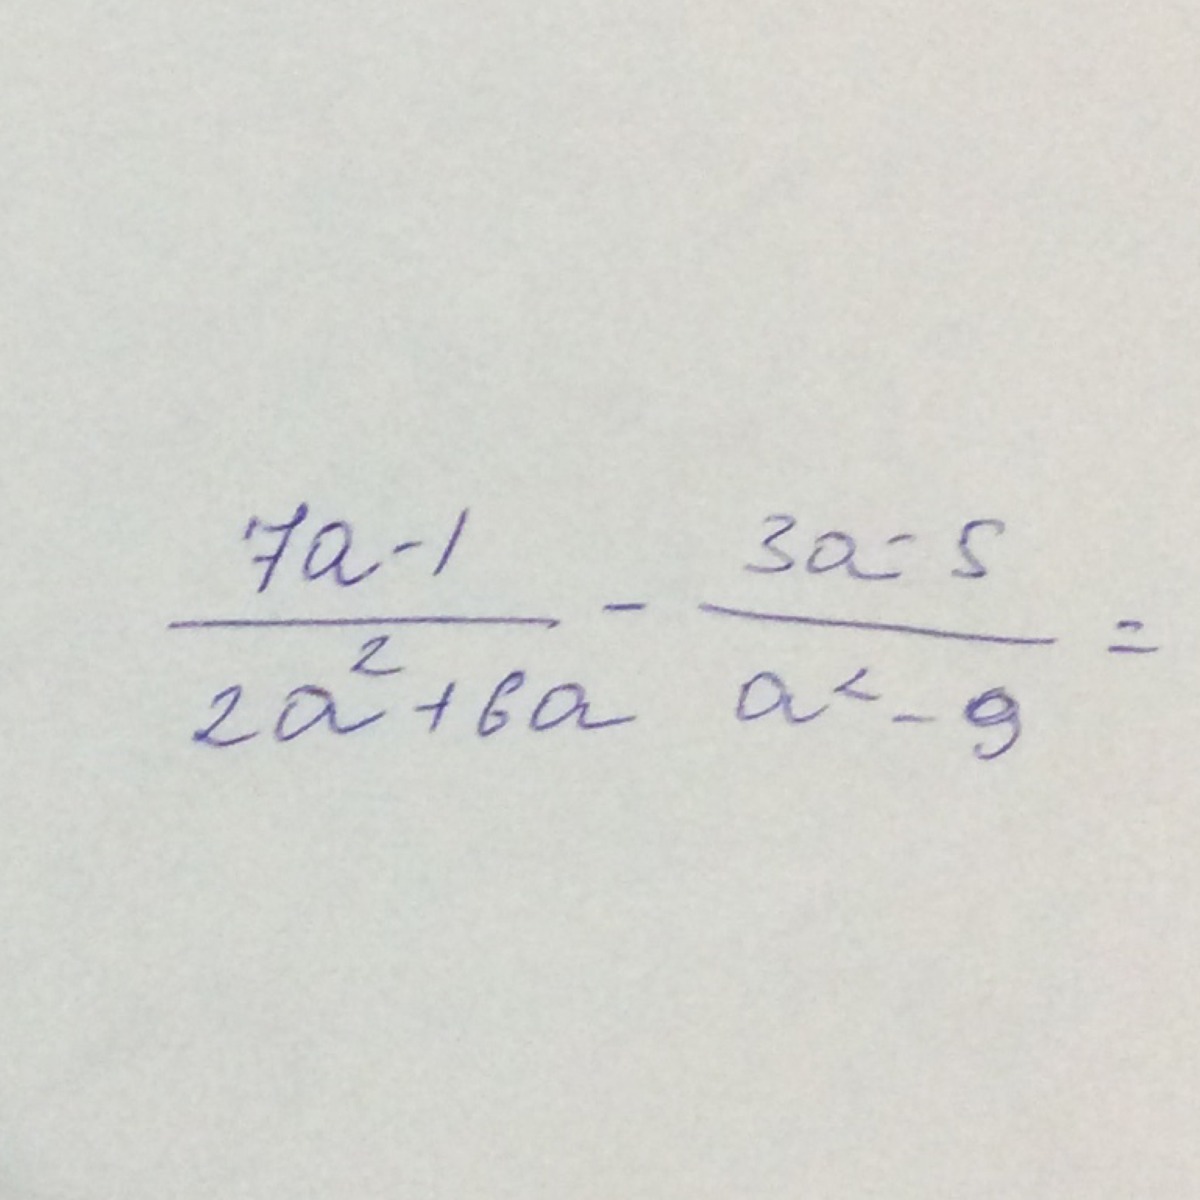 7a-1 / 2a²+6a - 3a-5 / a²-9 =